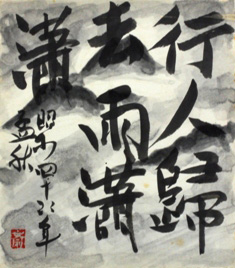 行人歸
去雨瀟
瀟
昭四十六年
孟秋